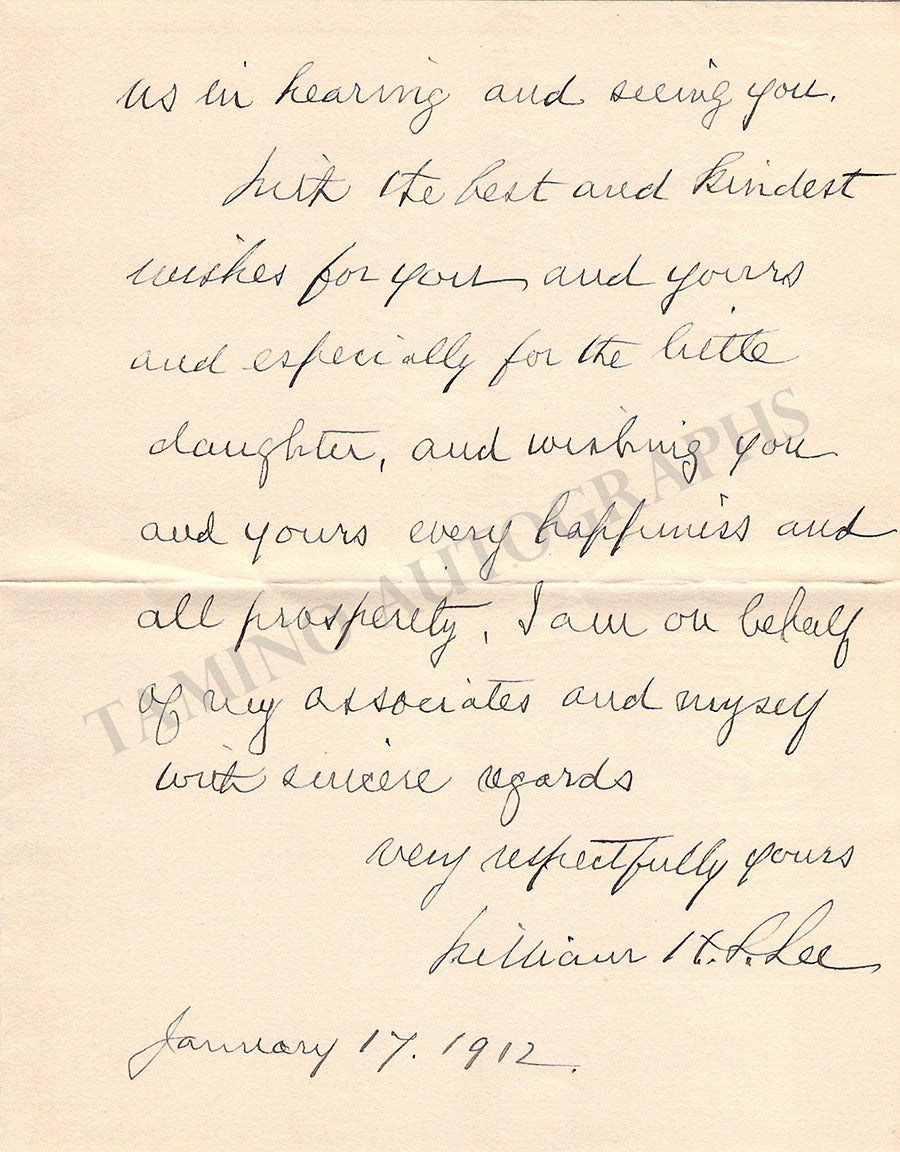 us in hearing and seeing you.
With the best and kindest
wishes for you and yours
and especially for the little
daughter, and wishing you
and yours every happiness and
all prosperity, I am on behalf
of my associates and myself
with sincere regards
very respectfully yours
William H. S. Lee
January 17. 1912.
TAMINO AUTOGRAPHS